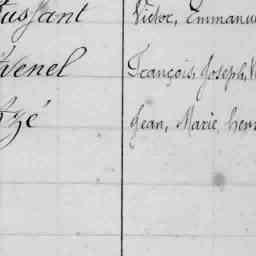 ussant Victor, Emmanu
venel François, Joseph, V
zé Jean, Marie, henr